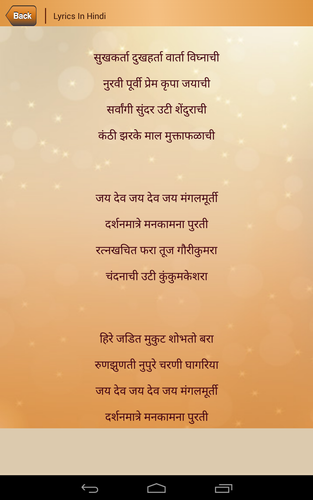 Back
Lyrics In Hindi
सुखकर्ता दुखहर्ता वार्ता विघ्नाची
नुरवी पूर्वी प्रेम कृपा जयाची
सर्वांगी सुंदर उटी शेंदुराची
कंठी झरके माल मुक्ताफळाची
जय देव जय देव जय मंगलमूर्ती
दर्शनमात्रे मनकामना पुरती
रत्नखचित फरा तूज गौरीकुमरा
चंदनाची उटी कुंकुमकेशरा
हिरे जडित मुकुट शोभतो बरा
रुणझुणती नुपुरे चरणी घागरिया
जय देव जय देव जय मंगलमूर्ती
दर्शनमात्रे मनकामना पुरती